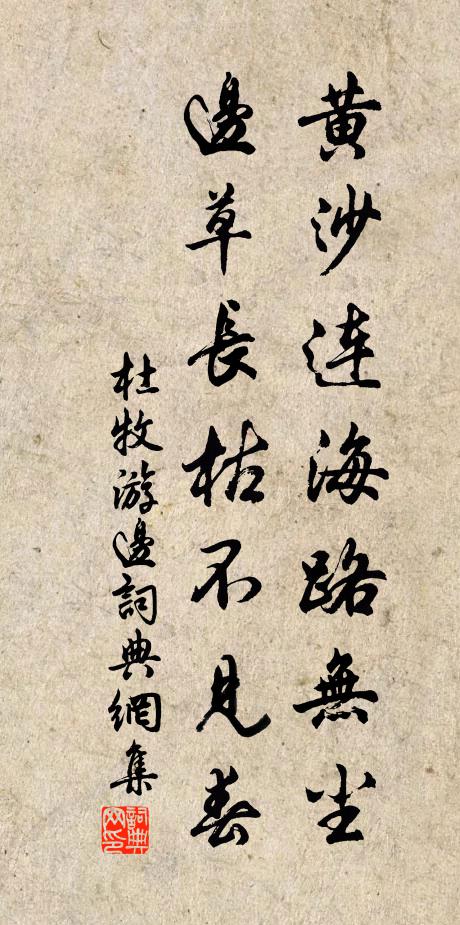 黄沙連海路無塵
邊草長枯不見春
杜牧游邊詞典網集
詞典网印